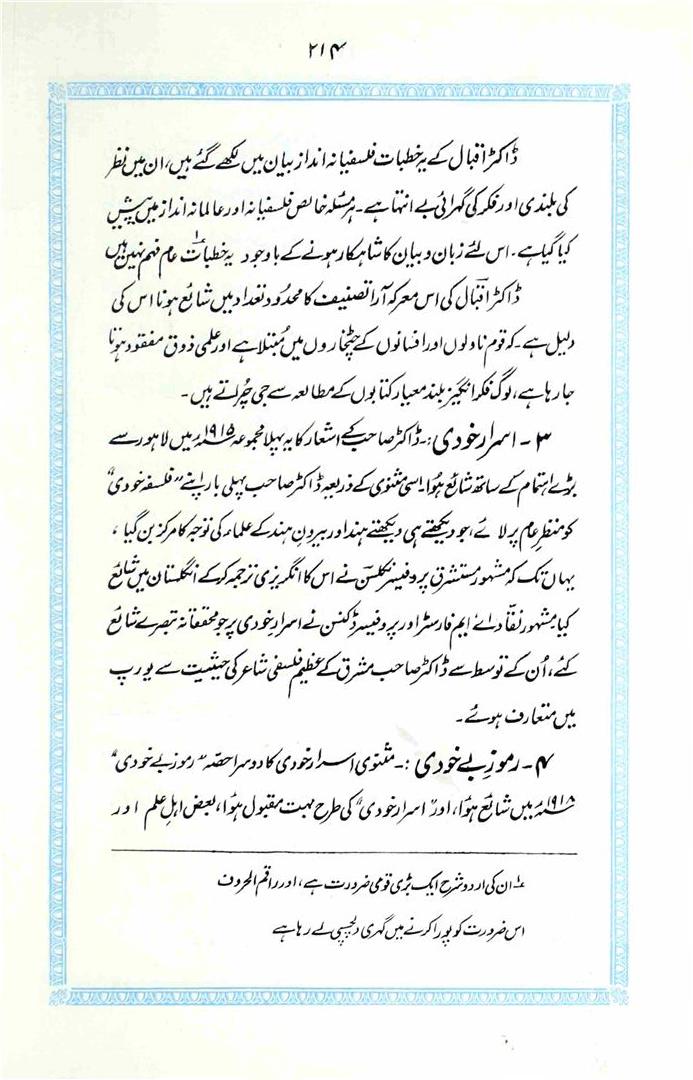 ۲۱۴
ڈاکٹر اقبال کے یہ خطبات فلسفیانہ انداز بیان میں لکھے گئے ہیں، ان میں نظر
کی بلندی اور فکر کی گہرائی بے انتہا ہے۔ ہر مسئلہ خالص فلسفیانہ اور عالمانہ انداز میں پیش
کیا گیا ہے۔ اس لئے زبان و بیان کا شاہکار ہونے کے باوجود یہ خطبات ۱؎ عام فہم نہیں ہیں
ڈاکٹر اقبالؒ کی اس معرکہ آرا تصنیف کا محدود تعداد میں شائع ہونا اس کی
دلیل ہے۔ کہ قوم ناولوں اور افسانوں کے چٹخاروں میں مُبتلا ہے اور علمی ذوق مفقود ہوتا
جا رہا ہے، لوگ فکر انگیز بلند معیار کتابوں کے مطالعہ سے جی چُراتے ہیں۔
۳ ۔ اسرار خودی :۔ ڈاکٹر صاحب کے اشعار کا یہ پہلا مجموعہ ۱۹۱۵ء میں لاہور سے
بڑے اہتمام کے ساتھ شائع ہُوا۔ اسی مثنوی کے ذریعہ ڈاکٹر صاحب پہلی بار اپنے "فلسفہ خودی"
کو منظرِ عام پر لائے، جو دیکھتے ہی دیکھتے ہند اور بیرونِ ہند کے علماء کی توجہ کا مرکز بن گیا ،
یہاں تک کہ مشہور مستشرق پروفیسر نکلسن نے اس کا انگریزی ترجمہ کر کے انگلستان میں شائع
کیا۔ مشہور نقاد ائے ایم فارسٹر اور پروفیسر ڈکنسن نے اسرار خودی پر جو محققانہ تبصرے شائع
کئے، اُن کے توسط سے ڈاکٹر صاحب مشرق کے عظیم فلسفی شاعر کی حیثیت سے یورپ
میں متعارف ہوئے۔
۴ ۔ رموزِ بے خودی :۔ مثنوی اسرار خودی کا دوسرا حصّہ "رموز بے خودی"
۱۹۱۸ء میں شائع ہُوا، اور "اسرار خودی" کی طرح بہت مقبول ہُوا، بعض اہلِ علم اور
۱؎ ان کی اردو شرح ایک بڑی قومی ضرورت ہے، اور راقم الحروف
اس ضرورت کو پورا کرنے میں گہری دلچسپی لے رہا ہے